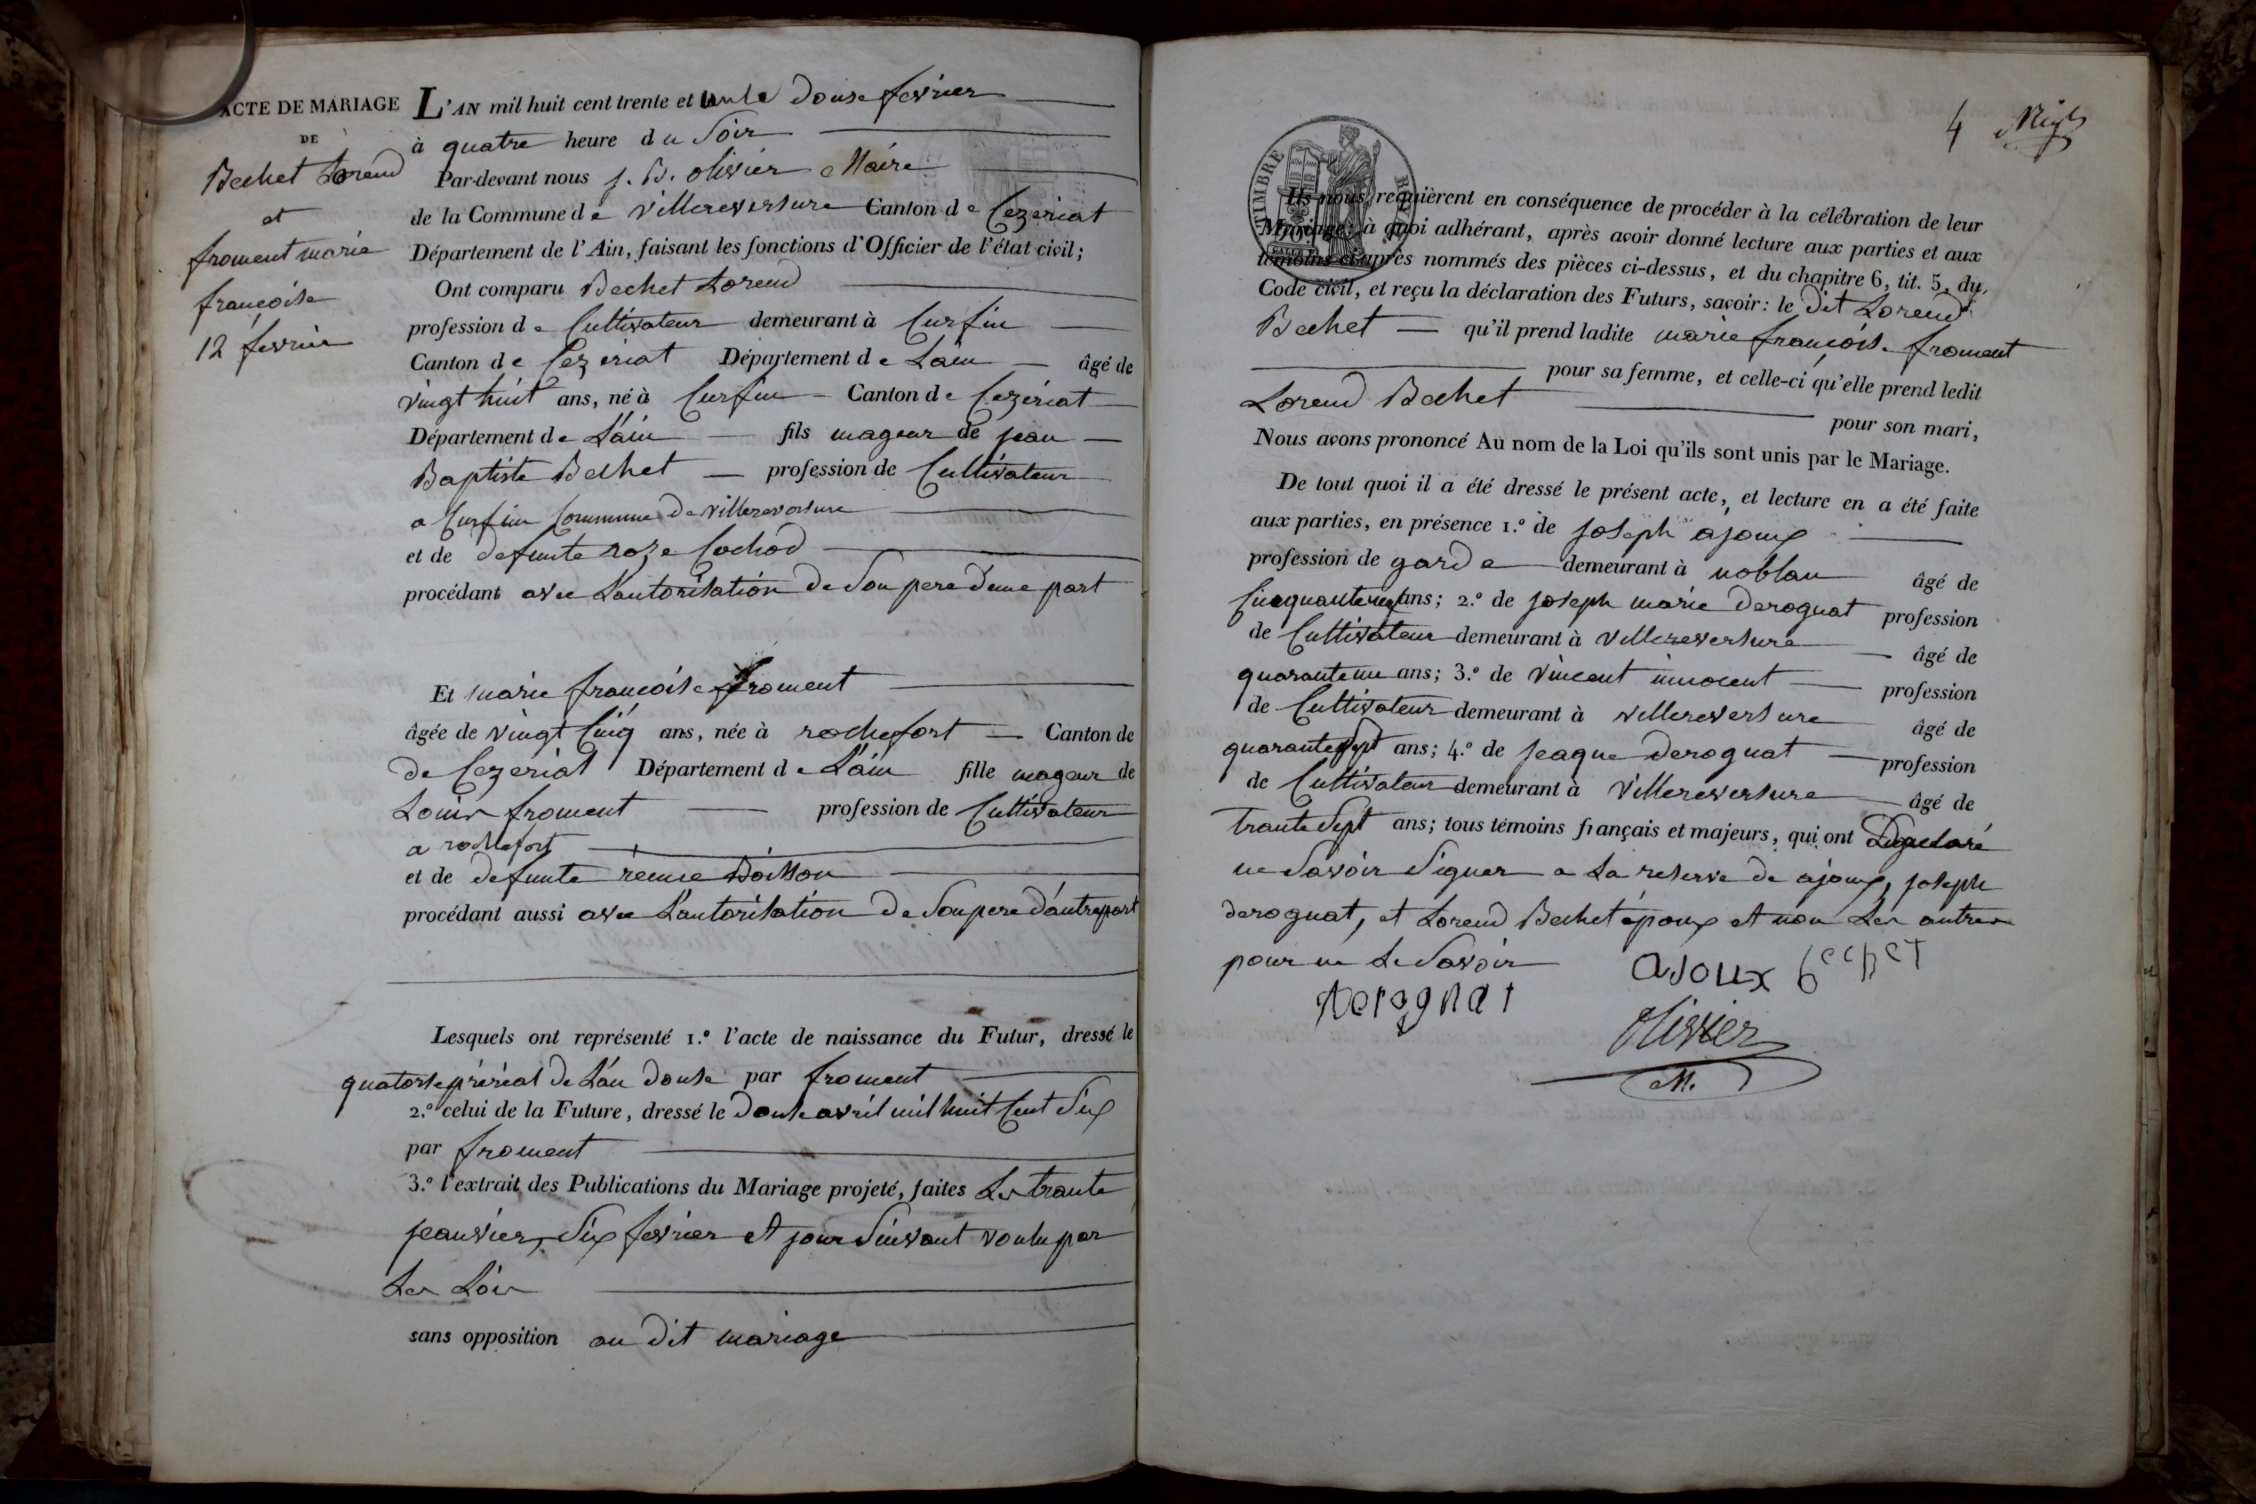 ACTE DE MARIAGE
DE
Bechet Lorend
et
froment marie
françoise
12 fevrier
L'AN mil huit cent trente et un le Douse fevrier
à quatre heure du Soir
Par-devant nous j. B. olivier Maire
de la Commune de Villereversure Canton de Cezeriat
Département de l'Ain, faisant les fonctions d'Officier de l'état civil;
Ont comparu Bechet Lorend
profession de Cultivateur demeurant à Curfin
Canton de Cezeriat Département de Lain âgé de
vingt huit ans, né à Curfin Canton de Cezériat
Département de L'ain fils mageur de jean
Baptiste Bechet profession de Cultivateur
a Curfin Commune De villereversure
et de defunte roze Cochod
procédant avec L'autorisation De Son pere d'une part
Et marie françoise froment
âgée de vingt Cinq ans, née à rochefort Canton de
De Cezeriat Département de L'ain fille mageur de
Louis froment profession de Cultivateur
a rochefort
et de defunte reine Boisson
procédant aussi avec L'autorisation De Son pere d'autre part
Lesquels ont représenté 1.° l'acte de naissance du Futur, dressé le
quatorse préréal De L'an douse par froment
2.° celui de la Future, dressé le Douse avril mil huit Cent Six
par froment
3.° l'extrait des Publications du Mariage projeté, faites Les trante
jeanvier, Six fevrier et jour Suivant voulu par
Les Lois
sans opposition au Dit mariage
4
TIMBRE ROYAL
Ils nous requièrent en conséquence de procéder à la célébration de leur
Mariage; à quoi adhérant, après avoir donné lecture aux parties et aux
témoins ci-après nommés des pièces ci-dessus, et du chapitre 6, tit. 5, du
Code civil, et reçu la déclaration des Futurs, savoir: le Dit Lorend
Bechet qu'il prend ladite marie françoise froment
pour sa femme, et celle-ci qu'elle prend ledit
Lorend Bechet pour son mari,
Nous avons prononcé Au nom de la Loi qu'ils sont unis par le Mariage.
De tout quoi il a été dressé le présent acte, et lecture en a été faite
aux parties, en présence 1.° de joseph ajoux
profession de garde demeurant à noblan âgé de
ans; 2.° de joseph marie derognat profession
de Cultivateur demeurant à Villereversure âgé de
quarante un ans; 3.° de Vincent innocent profession
de Cultivateur demeurant à villereversure âgé de
quarante Sept ans; 4.° de jeaque derognat profession
de Cultivateur demeurant à Villereversure âgé de
trante Sept ans; tous témoins français et majeurs, qui ont
ne Savoir Signer a La reserve de ajoux, joseph
derognat, et Lorend Bechet époux et non Les autres
pour ne Le Savoir
ajoux bechet
derognat
Olivier
M.